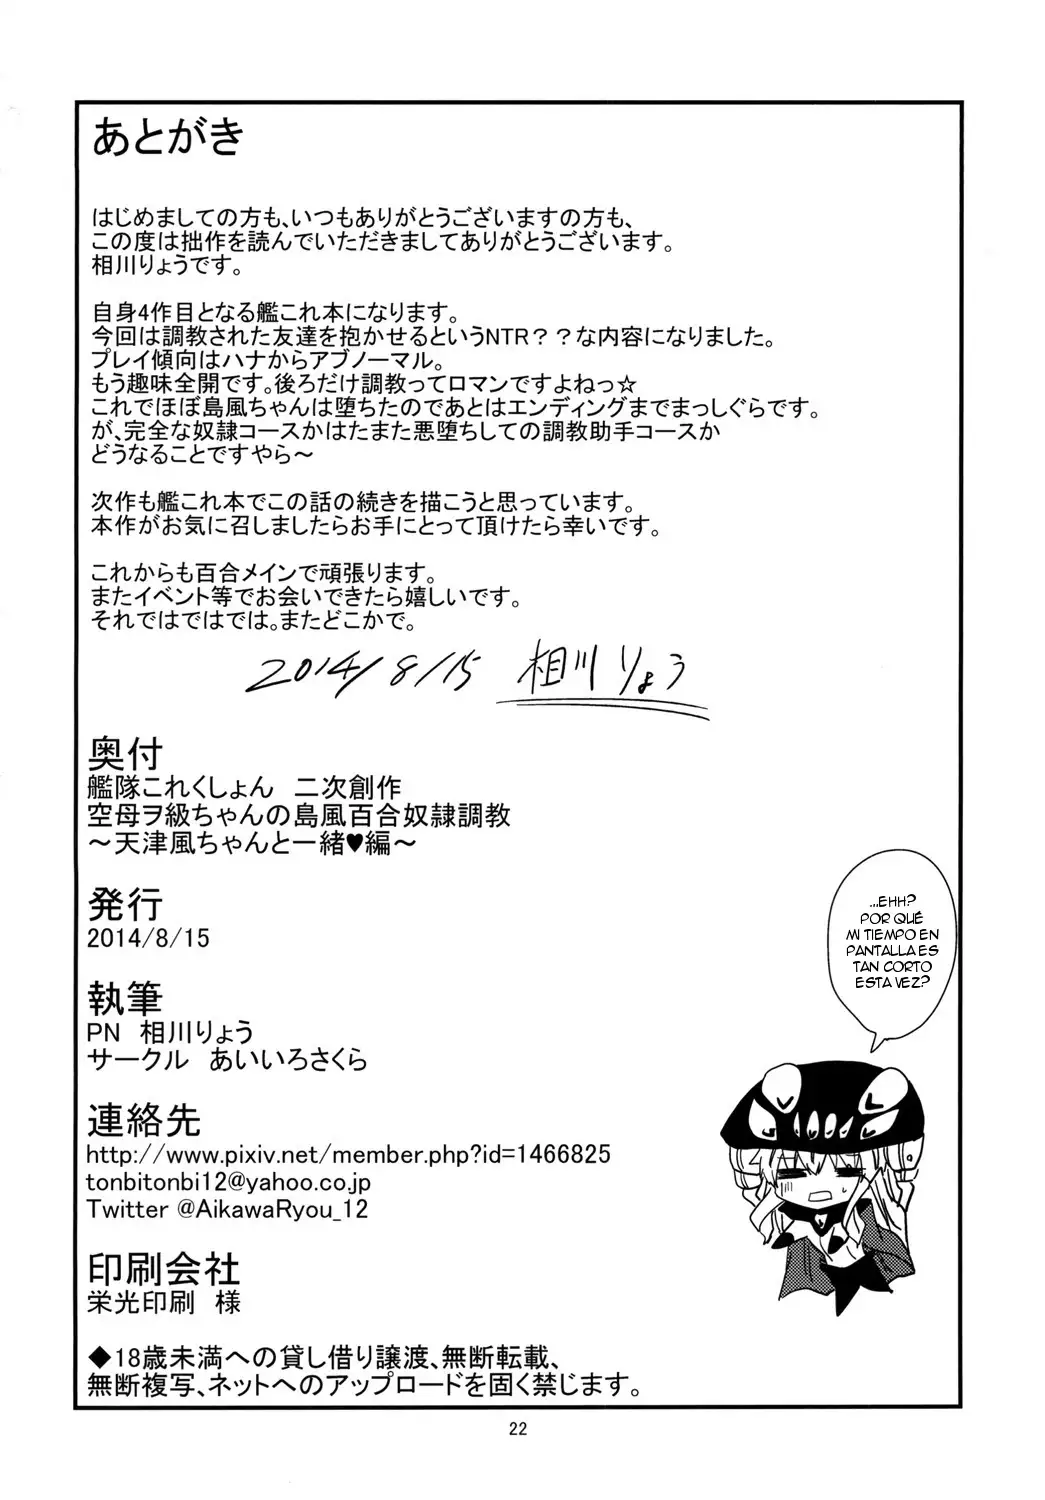 あとがき
はじめましての方も、いつもありがとうございますの方も、
この度は拙作を読んでいただきましてありがとうございます。
相川りょうです。
自身4作目となる艦これ本になります。
今回は調教された友達を抱かせるというNTR？？な内容になりました。
プレイ傾向はハナからアブノーマル。
もう趣味全開です。後ろだけ調教ってロマンですよねっ☆
これでほぼ島風ちゃんは堕ちたのであとはエンディングまでまっしぐらです。
が、完全な奴隷コースかはたまた悪堕ちしての調教助手コースか
どうなることですやら～
次作も艦これ本でこの話の続きを描こうと思っています。
本作がお気に召しましたらお手にとって頂けたら幸いです。
これからも百合メインで頑張ります。
またイベント等でお会いできたら嬉しいです。
それではではでは。またどこかで。
2014/8/15 相川りょう
奥付
艦隊これくしょん　二次創作
空母ヲ級ちゃんの島風百合奴隷調教
～天津風ちゃんと一緒♥編～
発行
2014/8/15
執筆
PN　相川りょう
サークル　あいいろさくら
連絡先
http://www.pixiv.net/member.php?id=1466825
tonbitonbi12@yahoo.co.jp
Twitter @AikawaRyou_12
印刷会社
栄光印刷　様
◆18歳未満への貸し借り譲渡、無断転載、
無断複写、ネットへのアップロードを固く禁じます。
...EHH?
POR QUÉ
MI TIEMPO EN
PANTALLA ES
TAN CORTO
ESTA VEZ?
22